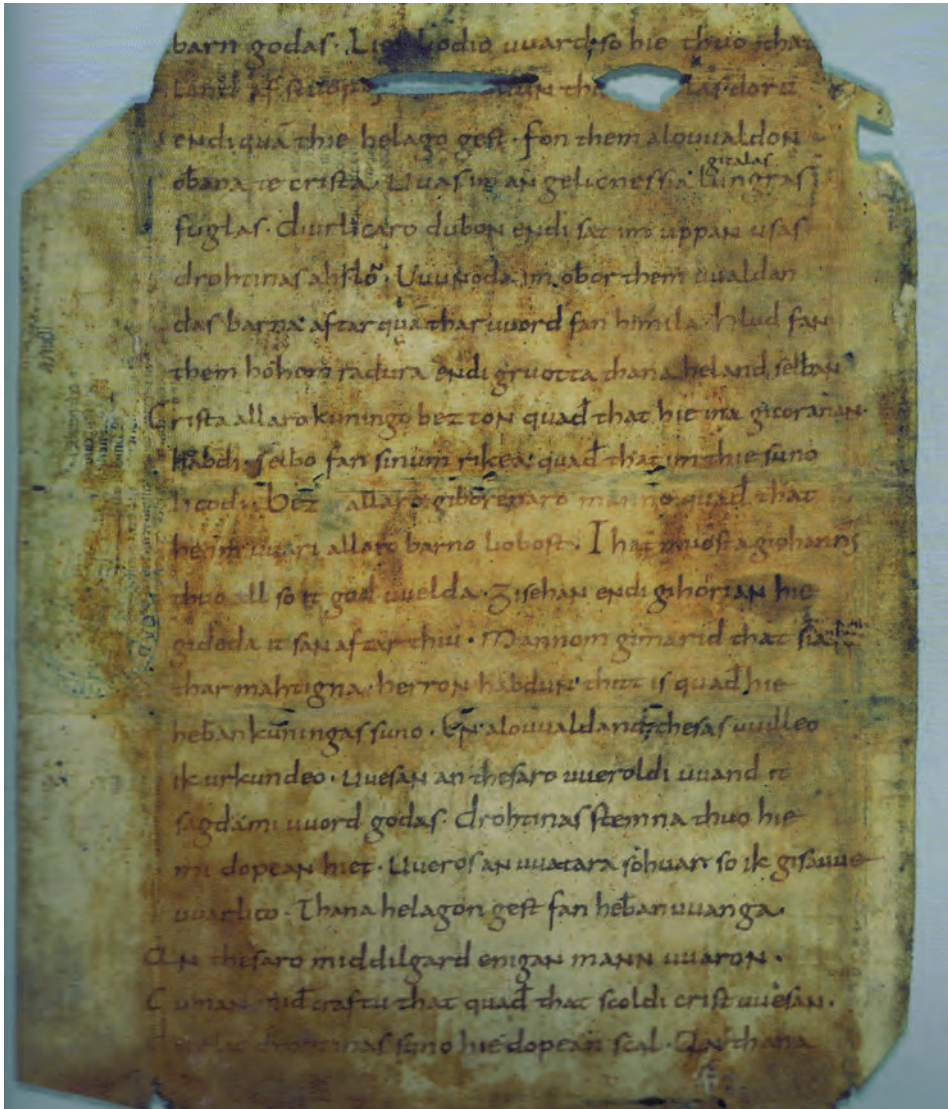 barn godas. uuard so hie thuo that
land af stuop
endi quā thie helago gest. fon them alouualdon
oƀana te crista. Uuas im an gelicnessia lungras
gitalas
fuglas. diurlicaro dubon endi sat im uppan usas
drohtinas ahslō. Uuunoda im oƀor them uualdan
das barna. aftar quā thar uuord fan himila. hlud fan
them hohom radura endi gruotta thana heland selban
Crista allaro kuningo bezton quađ that hie ina gicoranan.
habdi. selbo fan sinum rikea. quađ that im thie suno
licodi. bez allaro giborenaro manno quađ that
he im uuari allaro barno lioƀost. That muosta giohannes
thuo all so it god uuelda. Gisehan endi gihorian hie
gidoda it san aftar thiu. Mannom gimarid that sia
thar mahtigna. herron habdun. thitt is quađ hie
heƀankuningas suno. En alouualdand. thesas uuilleo
ik urkundeo. Uuesan an thesaro uueroldi uuand it
sagda mi uuord godas. drohtinas stemna thuo hie
mi dopean hiet. Uueros an uuatara so huar so ik gisauue
uuarlico. Thana helagon gest fan heƀanuuanga.
An thesaro middilgard enigan mann uuaron.
Cuman mid craftu that quađ that scoldi crist uuesan.
drohtinas suno hie dopean scal. An thana